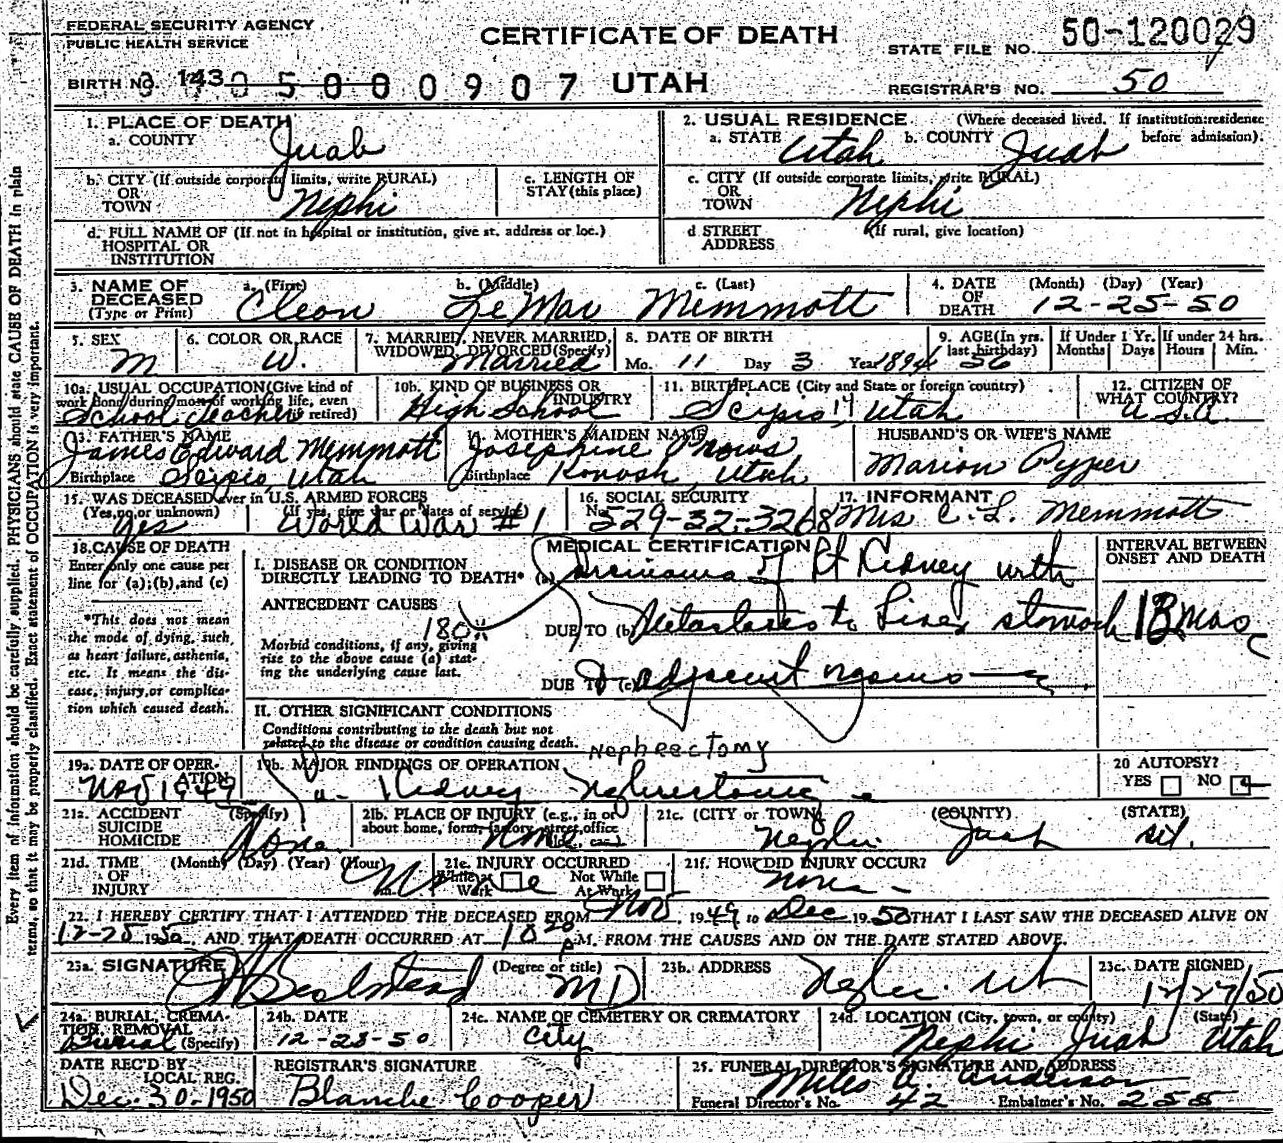 FEDERAL SECURITY AGENCY
PUBLIC HEALTH SERVICE
CERTIFICATE OF DEATH
STATE FILE NO. 50-120029
BIRTH NO. 143 05000907 UTAH
REGISTRAR'S NO. 50
1. PLACE OF DEATH
a. COUNTY Juab
2. USUAL RESIDENCE. (Where deceased lived. If institution:residence before admission).
a. STATE Utah b. COUNTY Juab
b. CITY (If outside corporate limits, write RURAL) OR TOWN Nephi
c. LENGTH OF STAY (this place)
c. CITY (If outside corporate limits, write RURAL) OR TOWN Nephi
d. FULL NAME OF (If not in hospital or institution, give st. address or loc.) HOSPITAL OR INSTITUTION
d STREET ADDRESS (If rural, give location)
3. NAME OF DECEASED (Type or Print) a. (First) Cleon b. (Middle) LeMar c. (Last) Memmott
4. DATE OF DEATH (Month) (Day) (Year) 12-25-50
5. SEX M
6. COLOR OR RACE W.
7. MARRIED, NEVER MARRIED, WIDOWED, DIVORCED (Specify) Married
8. DATE OF BIRTH Mo. 11 Day 3 Year 1894
9. AGE (In yrs. last birthday) 56
If Under 1 Yr. Months Days
If under 24 hrs. Hours Min.
10a. USUAL OCCUPATION (Give kind of work done during most of working life, even if retired) School Teacher
10b. KIND OF BUSINESS OR INDUSTRY High School
11. BIRTHPLACE (City and State or foreign country) Scipio, Utah
12. CITIZEN OF WHAT COUNTRY? U.S.A.
13. FATHER'S NAME James Edward Memmott
Birthplace Scipio, Utah
14. MOTHER'S MAIDEN NAME Josephine Prows
Birthplace Kanosh, Utah
HUSBAND'S OR WIFE'S NAME
Marion Pyper
15. WAS DECEASED ever in U.S. ARMED FORCES
(Yes, no, or unknown) Yes (If yes, give war or dates of service) World War #1
16. SOCIAL SECURITY No. 529-32-3268
17. INFORMANT Mrs C. L. Memmott
18. CAUSE OF DEATH
Enter only one cause per line for (a); (b), and (c)
*This does not mean the mode of dying, such as heart failure, asthenia, etc. It means the disease, injury, or complication which caused death.
MEDICAL CERTIFICATION
INTERVAL BETWEEN ONSET AND DEATH
I. DISEASE OR CONDITION DIRECTLY LEADING TO DEATH* (a) Carcinoma of Rt Kidney with
ANTECEDENT CAUSES 180x
Morbid conditions, if any, giving rise to the above cause (a) stating the underlying cause last.
DUE TO (b) Metastases to Liver, stomach 13 mos
DUE TO (c) & adjacent
II. OTHER SIGNIFICANT CONDITIONS
Conditions contributing to the death but not related to the disease or condition causing death.
Nephrectomy
19a. DATE OF OPERATION Nov 1949
19b. MAJOR FINDINGS OF OPERATION Kidney
20 AUTOPSY? YES NO
21a. ACCIDENT SUICIDE HOMICIDE (Specify) None.
21b. PLACE OF INJURY (e.g., in or about home, farm, factory, street, office bldg., etc.) None
21c. (CITY or TOWN) Nephi (COUNTY) Juab (STATE) Ut.
21d. TIME OF INJURY (Month) (Day) (Year) (Hour) m. None
21e. INJURY OCCURRED While at Work Not While At Work
21f. HOW DID INJURY OCCUR? None
22. I HEREBY CERTIFY THAT I ATTENDED THE DECEASED FROM Nov, 1949 to Dec 1950 THAT I LAST SAW THE DECEASED ALIVE ON
12-25 1950 AND THAT DEATH OCCURRED AT 10 20 P M. FROM THE CAUSES AND ON THE DATE STATED ABOVE.
23a. SIGNATURE (Degree or title) MD
23b. ADDRESS Nephi. Ut
23c. DATE SIGNED 12/27/50
24a. BURIAL, CREMATION, REMOVAL (Specify) Burial
24b. DATE 12-28-50
24c. NAME OF CEMETERY OR CREMATORY City
24d. LOCATION (City, town, or county) (State) Nephi Juab Utah
DATE REC'D BY LOCAL REG. Dec. 30. 1950
REGISTRAR'S SIGNATURE Blanche Cooper
25. FUNERAL DIRECTOR'S SIGNATURE AND ADDRESS Miles A. Anderson
Funeral Director's No. 42 Embalmer's No. 255
Every item of information should be carefully supplied. PHYSICIANS should state CAUSE OF DEATH in plain
terms, so that it may be properly classified. Exact statement of OCCUPATION is very important.